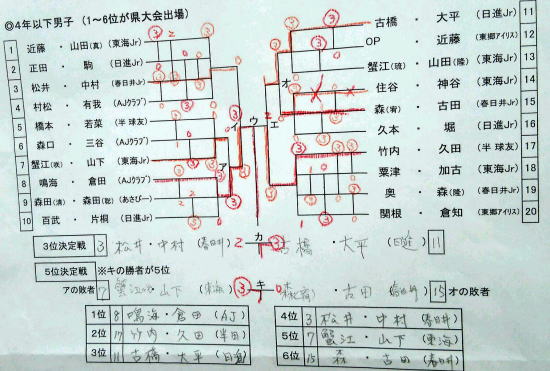 ◎4年以下男子（1～6位が県大会出場）
1 近藤 ・ 山田(真) (東海Jr)
2 正田 ・ 駒 (日進Jr)
3 松井 ・ 中村 (春日井Jr)
4 村松 ・ 有我 (AJクラブ)
5 橋本 ・ 若菜 (半 球友)
6 森口 ・ 三谷 (AJクラブ)
7 蟹江(咲) ・ 山下 (東海Jr)
8 鳴海 ・ 倉田 (AJクラブ)
9 森田(湧) ・ 森田(聡) (あさひー)
10 百武 ・ 片桐 (日進Jr)
古橋 ・ 大平 (日進Jr) 11
OP ・ 近藤 (東郷アイリス) 12
蟹江(琉) ・ 山田(隆) (東海Jr) 13
住谷 ・ 神谷 (東海Jr) 14
森(宥) ・ 古田 (春日井Jr) 15
久本 ・ 堀 (日進Jr) 16
竹内 ・ 久田 (半 球友) 17
粟津 ・ 加古 (東海Jr) 18
奥 ・ 森(隆) (春日井Jr) 19
関根 ・ 倉知 (東郷アイリス) 20
ア イ ウ エ オ
3位決定戦 3 松井・中村 (春日井) 2 カ ③ 古橋 ・ 大平 (日進) 11
5位決定戦 ※キの勝者が5位
アの敗者 7 蟹江 ・山下 (東海) ③ キ 0 森(宥) ・ 古田 (春日井) 15 オの敗者
1位 8 鳴海・倉田 (AJ)
2位 17 竹内・久田 (半田)
3位 11 古橋・大平 (日進)
4位 3 松井・中村 (春日井)
5位 7 蟹江・山下 (東海)
6位 15 森・古田 (春日井)